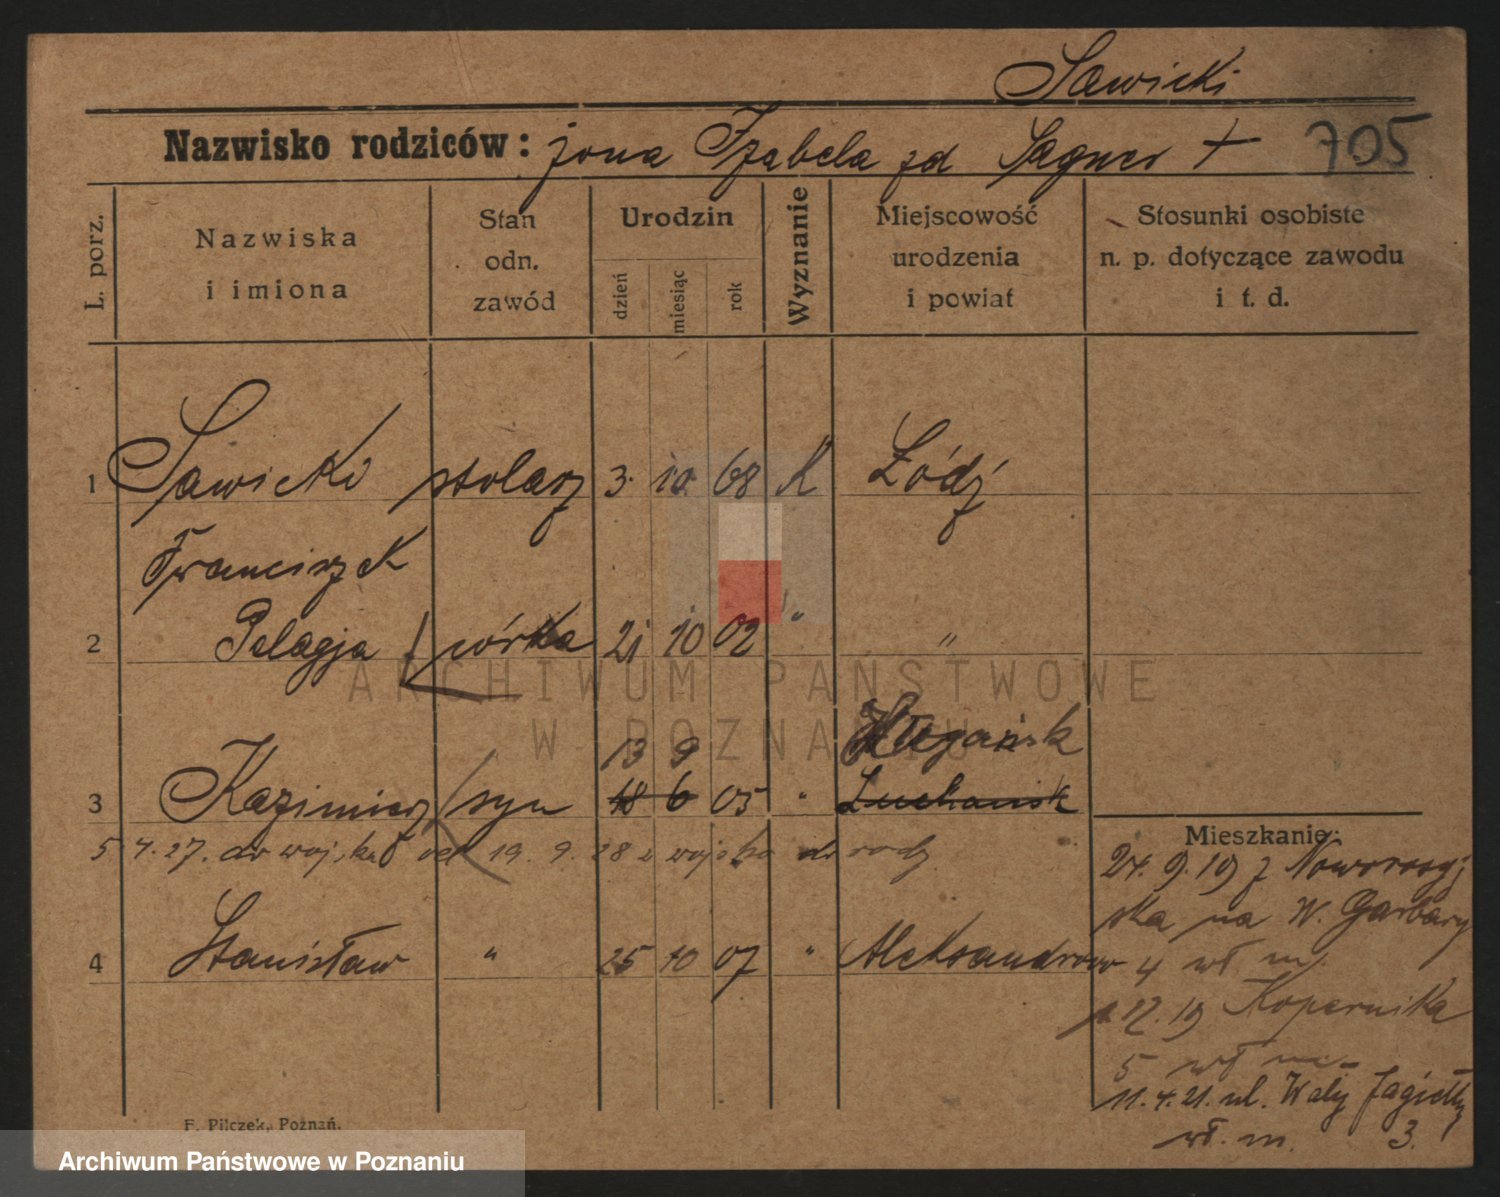 Sawicki
Nazwisko rodziców: żona Izabela zd Sagner + 705
L. porz.
Nazwiska i imiona
Stan odn. zawód
Urodzin
dzień
miesiąc
rok
Wyznanie
Miejscowość urodzenia i powiat
Stosunki osobiste n. p. dotyczące zawodu i t. d.
1 Sawicki stolarz 3. 10. 68 K Łódź
Franciszek
2 Pelagja córka 21 10 02 " "
13 9 Ługańsk
3 Kazimierz syn 18 6 05 " Luchansk
5 4. 27. do wojska od 19. 9. 28 z wojska do rodz
4 Stanisław " 25 10 07 " Aleksandrow
Mieszkanie:
24. 9. 19 z Noworosyj
ska na W. Garbary
4 wł m.
12. 19 Kopernika
5 wł m.
11. 4. 21. ul. Wały Jagiełły
wł. m. 3.
F. Pilczek, Poznań.
ARCHIWUM PAŃSTWOWE
W POZNANIU
Archiwum Państwowe w Poznaniu